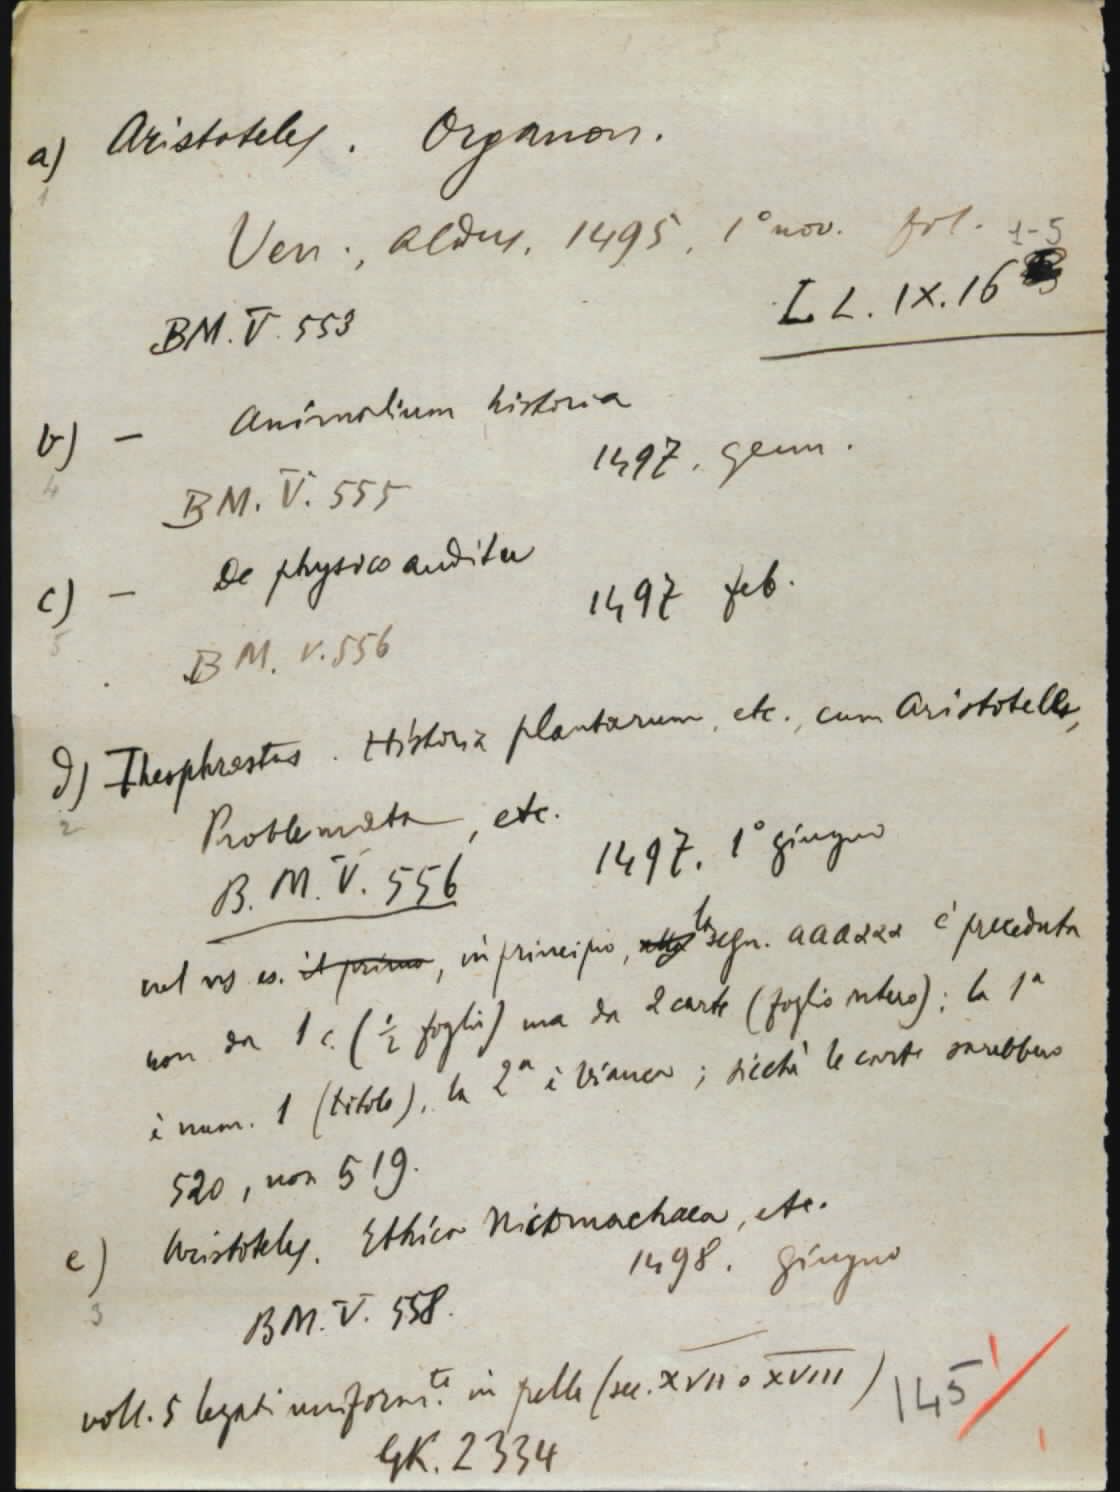 a) Aristoteles. Organon.
1
Ven., Aldus, 1495, 1° nov. fol.
1-5
L L. IX. 16
BM. V. 553
b) — Animalium historia
4
1497. genn.
BM. V. 555
c) — De physico auditu
5
1497 feb.
BM. V. 556
d) Theophrastus. Historia plantarum, etc., cum Aristotelis,
2
Problemata, etc.
1497. 1° giugno
B. M. V. 556
nel ns es. il primo, in principio, la segn. aaaααα è preceduta
non da 1 c. (½ foglio) ma da 2 carte (foglio intero); la 1ª
è num. 1 (titolo), la 2ª è bianca; sicchè le carte sarebbero
520, non 519.
e) Aristoteles. Ethica Nicomachaea, etc.
3
1498. giugno
BM. V. 558.
voll. 5 legati uniform.te in pelle (sec. XVII o XVIII)
145
GK. 2334